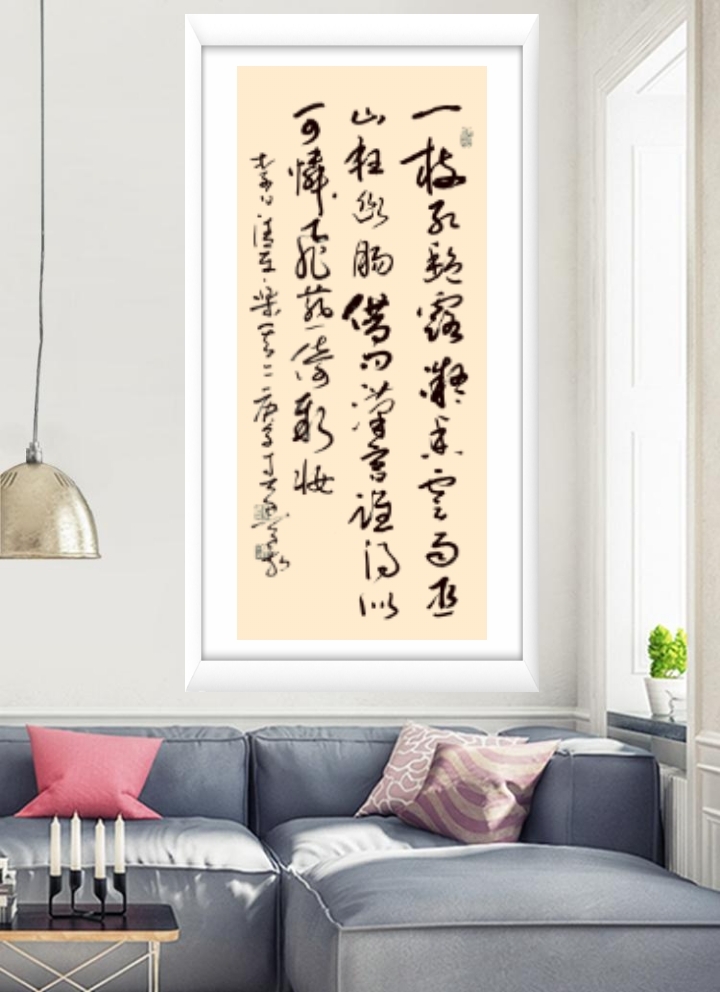 一枝红艳露凝香云雨巫
山枉断肠借问汉宫谁得似
可怜飞燕倚新妆
李白清平乐一首